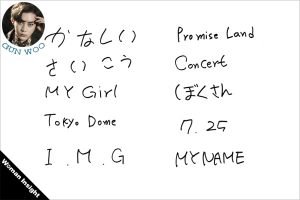 GUN WOO
かなしい
さいこう
MY Girl
Tokyo Dome
I.M.G
Promise Land
Concert
しぼくさん
7.25
MYNAME
Woman Insight